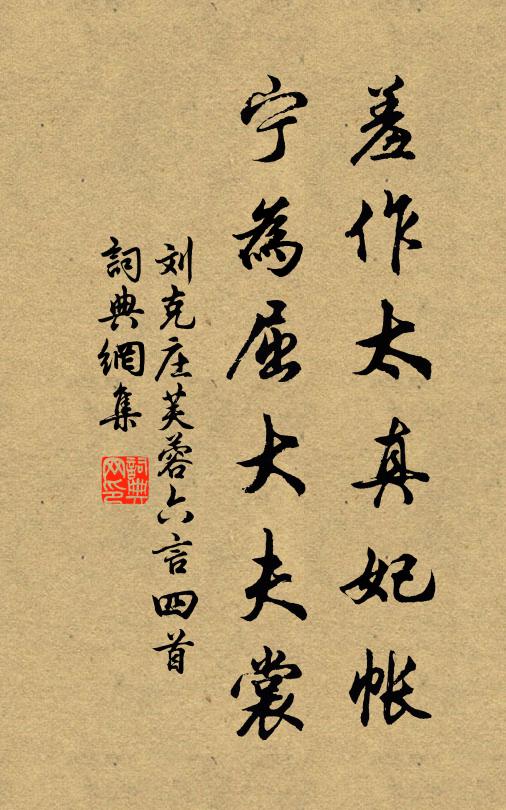 羞作太真妃帐
宁為屈大夫裳
刘克庄芙蓉六言四首
詞典網集
詞典网印